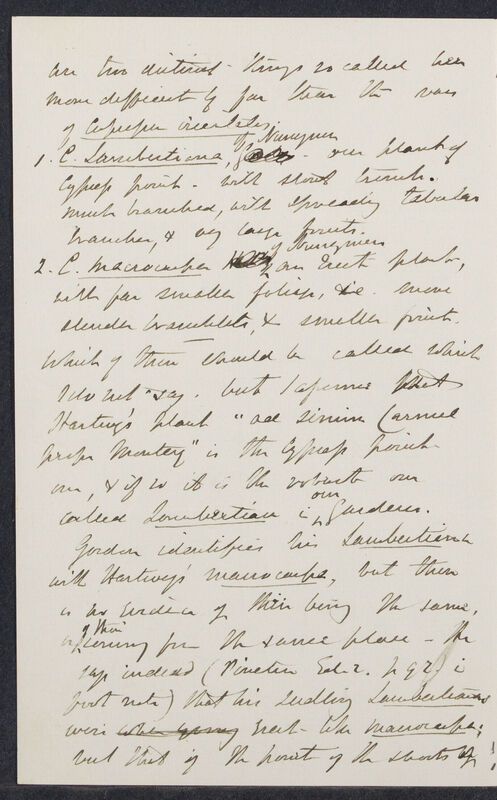 are two distinct things so called here
more different by far than the vars
of Cupressus
1. C. Lambertiana, of Nurserymen - our plant of
Cypress point - with stout trunk.
much branched, with spreading tabular
branches, & very large fruits.
2. C. macrocarpa of Nurserymen, an erect plant,
with far smaller foliage, i.e. more
slender branchlets, & smaller fruit.
Which of them should be called which
I do not say. but I assume that
Hartweg's plant "ad sinum Carmel
prope Monterey" is the Cypress point
one, & if so it is the robust one
called Lambertiana in our Gardens.
Gordon identifies his Lambertiana
with Hartweg's macrocarpa, but there
is no evidence of their being the same,
or of their coming from the same place - He
says indeed (Pinetum Ed. 2. p 92 in
foot note) that his seedling Lambertianas
were when young erect like macrocarpa;
but that if the point of the shoots